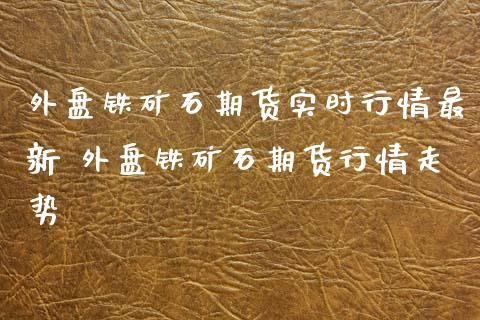 外盘铁矿石期货实时行情最
新 外盘铁矿石期货行情走
势